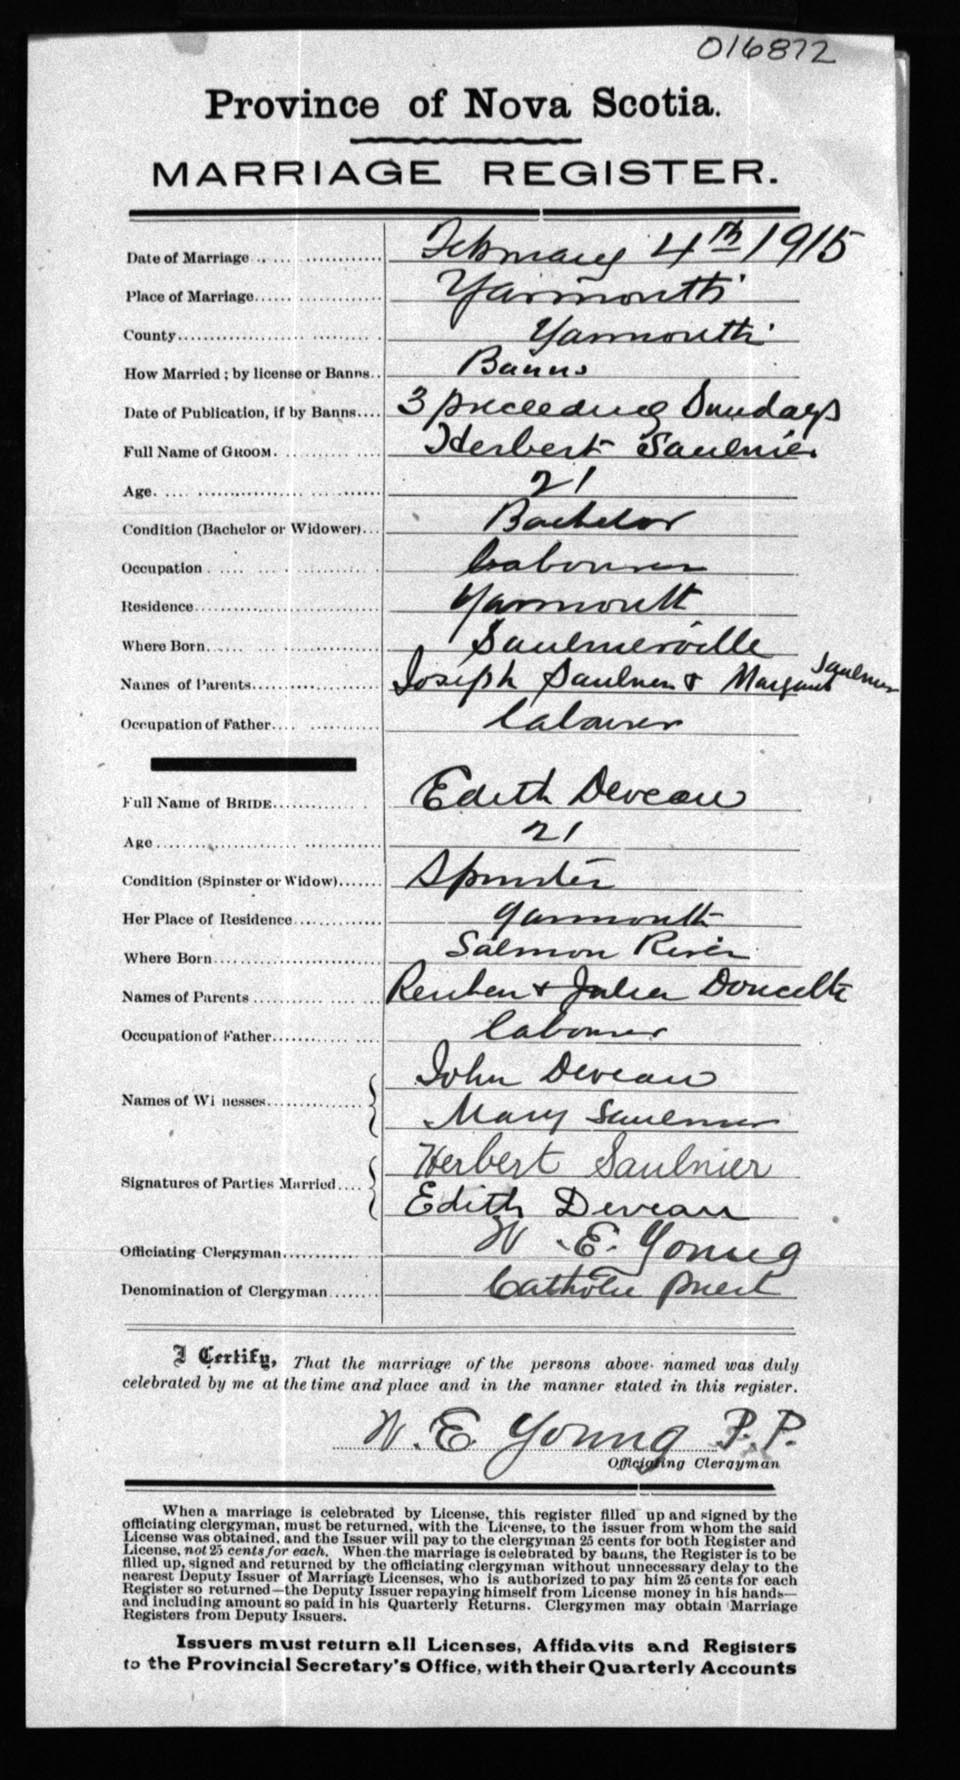 016872
Province of Nova Scotia.
MARRIAGE REGISTER.
Date of Marriage February 4th 1915
Place of Marriage Yarmouth
County Yarmouth
How Married ; by license or Banns.. Banns
Date of Publication, if by Banns.... 3 preceeding Sundays
Full Name of GROOM. Herbert Saulnier
Age. 21
Condition (Bachelor or Widower)... Bachelor
Occupation Labourer
Residence Yarmouth
Where Born Saulnierville
Names of Parents Joseph Saulnier & Margaret Saulnier
Occupation of Father Labourer
Full Name of BRIDE Edith Deveau
Age 21
Condition (Spinster or Widow) Spinster
Her Place of Residence Yarmouth
Where Born Salmon River
Names of Parents Reuben & Julia Doucette
Occupation of Father Labourer
Names of Wi nesses John Deveau
Mary Saulnier
Signatures of Parties Married Herbert Saulnier
Edith Deveau
Officiating Clergyman W. E. Young
Denomination of Clergyman Catholic priest
I Certify, That the marriage of the persons above-named was duly
celebrated by me at the time and place and in the manner stated in this register.
W. E. Young P.P.
Officiating Clergyman
When a marriage is celebrated by License, this register filled up and signed by the
officiating clergyman, must be returned, with the License, to the issuer from whom the said
License was obtained, and the Issuer will pay to the clergyman 25 cents for both Register and
License, not 25 cents for each. When the marriage is celebrated by banns, the Register is to be
filled up, signed and returned by the officiating clergyman without unnecessary delay to the
nearest Deputy Issuer of Marriage Licenses, who is authorized to pay him 25 cents for each
Register so returned—the Deputy Issuer repaying himself from License money in his hands—
and including amount so paid in his Quarterly Returns. Clergymen may obtain Marriage
Registers from Deputy Issuers.
Issuers must return all Licenses, Affidavits and Registers
to the Provincial Secretary's Office, with their Quarterly Accounts